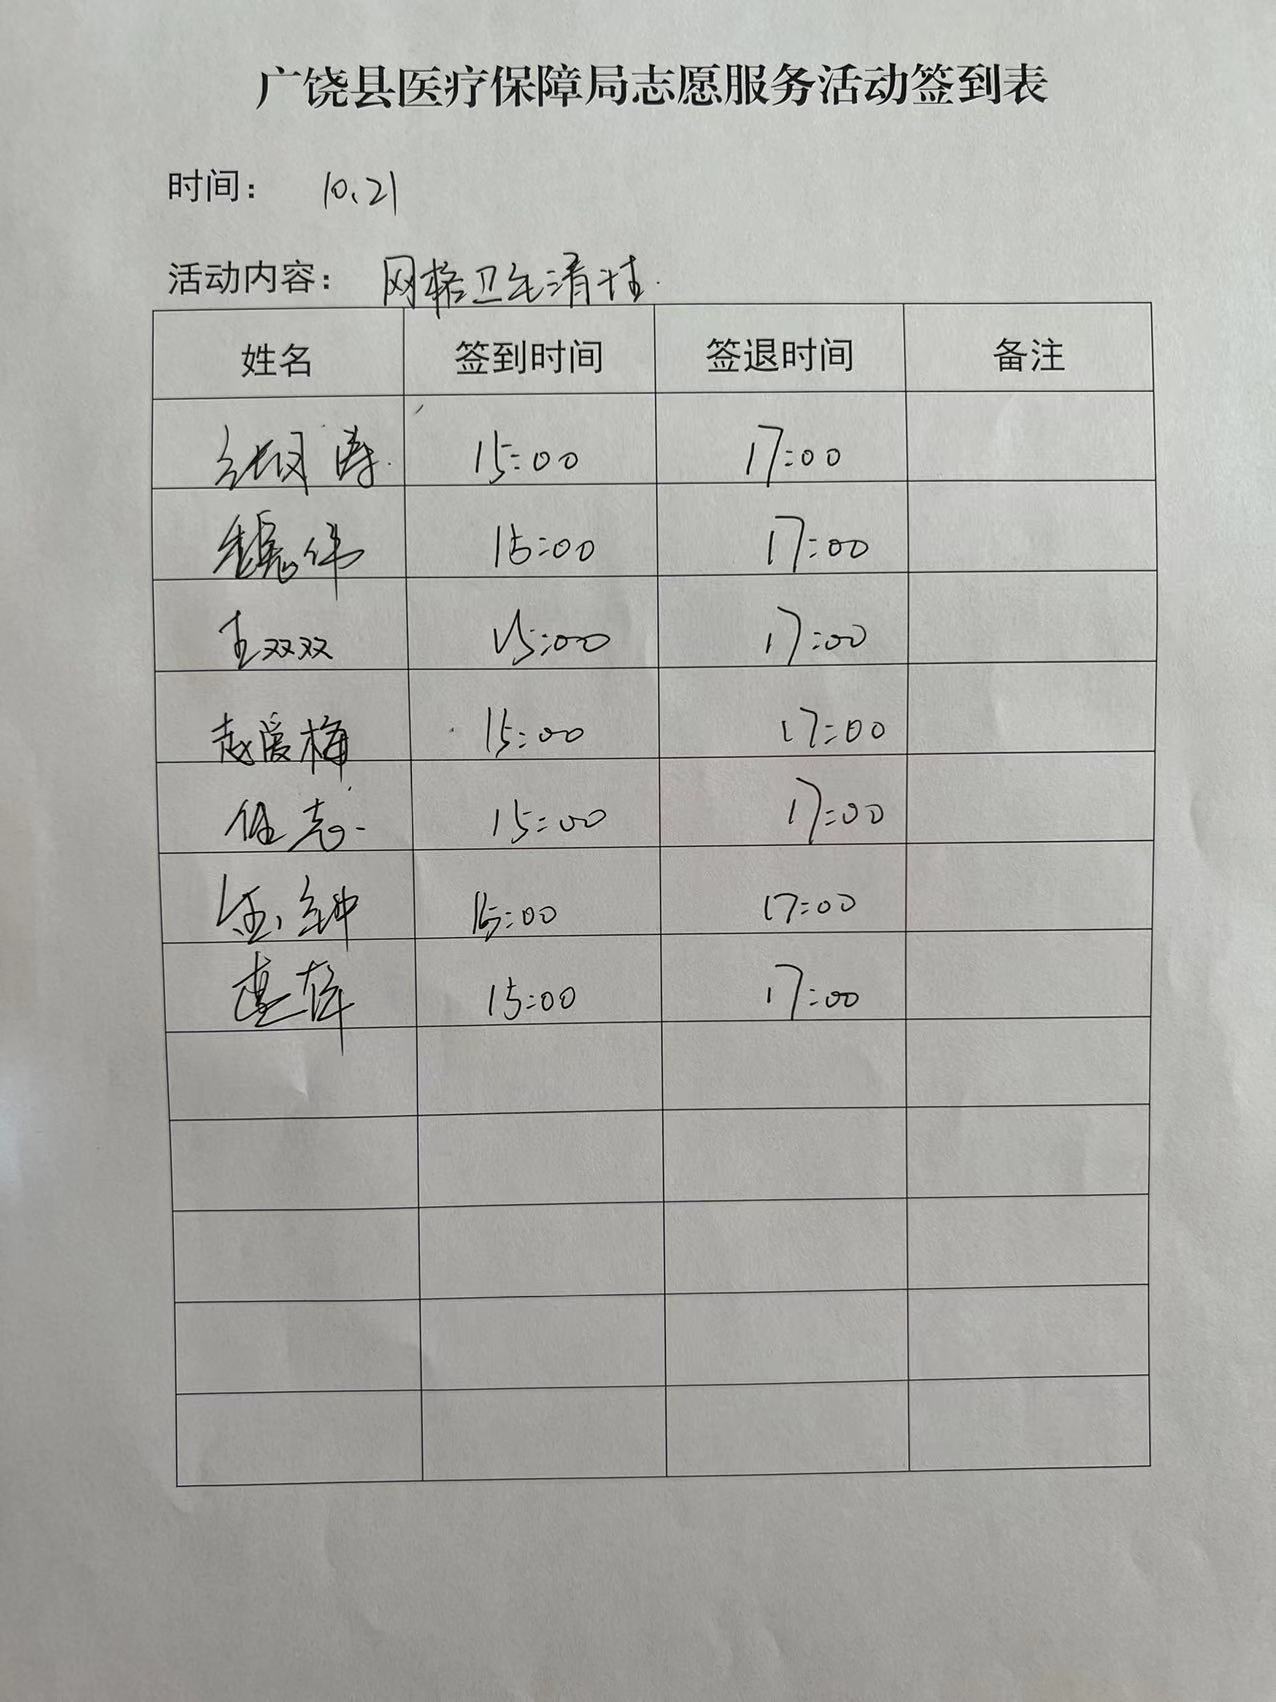 广饶县医疗保障局志愿服务活动签到表
时间： 10、21
活动内容： 网格卫生清洁.
姓名 签到时间 签退时间 备注
15:00 17:00
魏伟 15:00 17:00
王双双 15:00 17:00
赵爱梅 15:00 17:00
任志 15:00 17:00
15:00 17:00
15:00 17:00